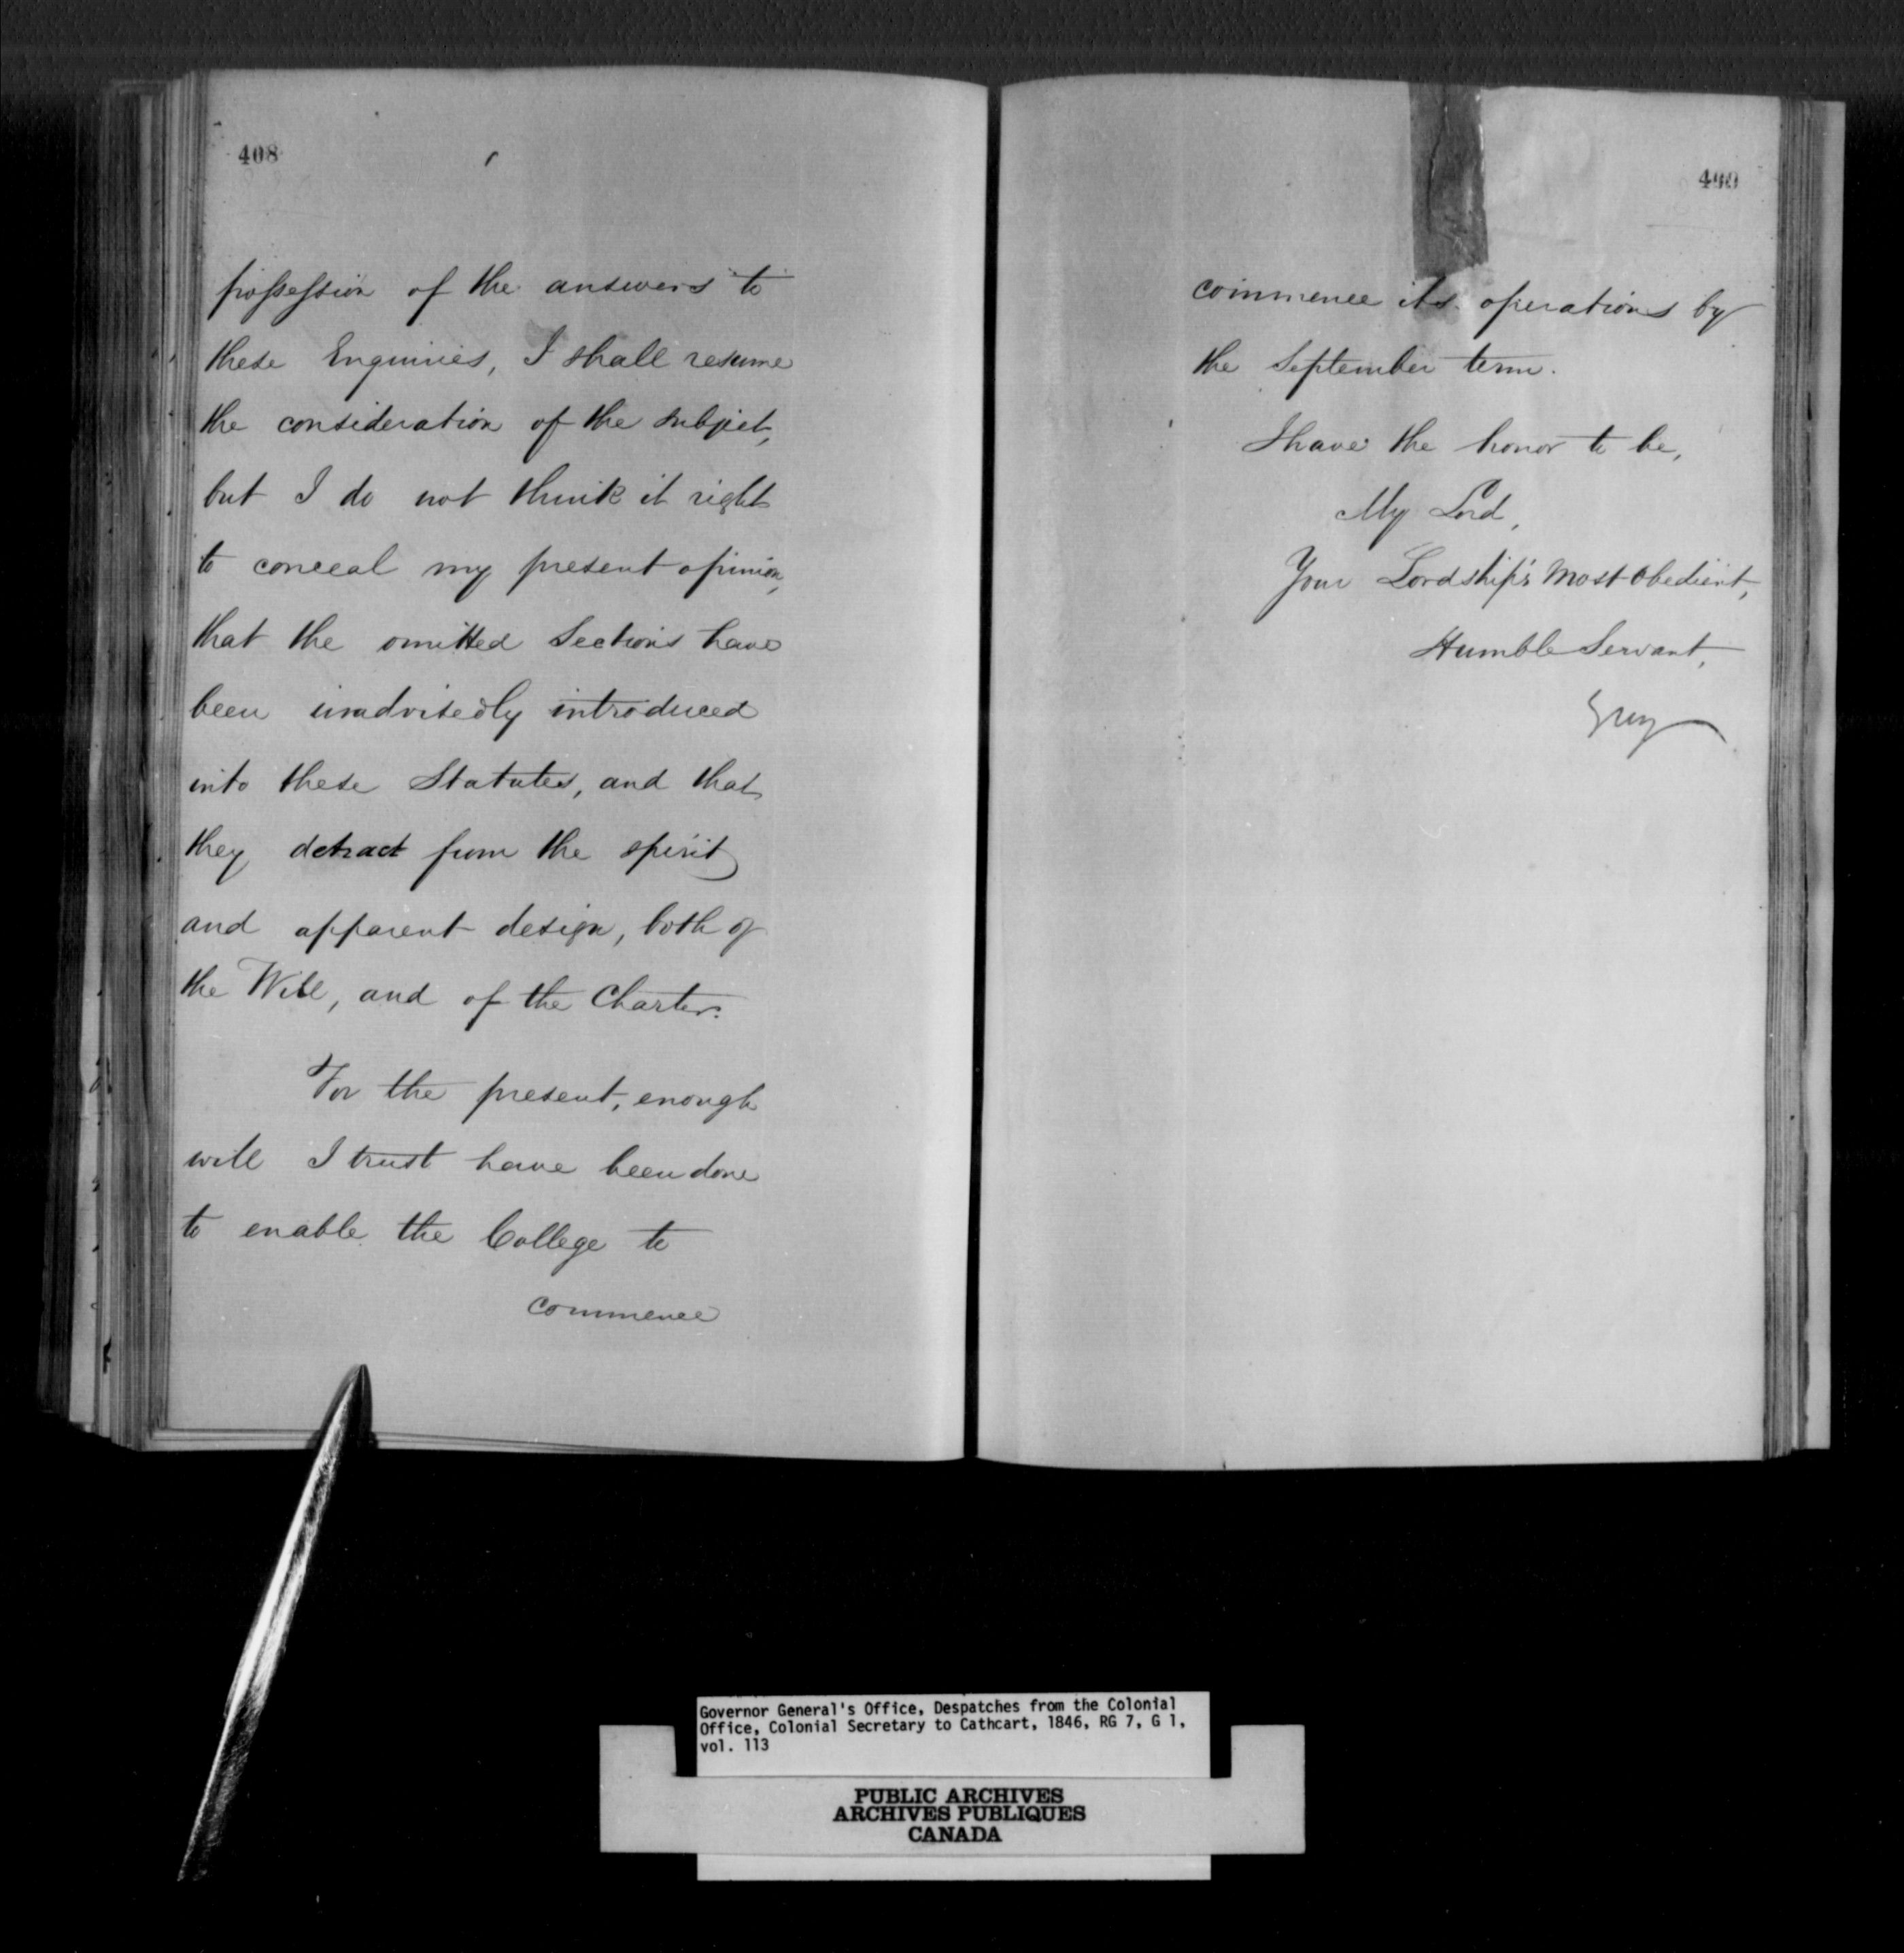 408
possession of the answers to
these Enquiries, I shall resume
the consideration of the subject,
but I do not think it right
to conceal my present opinion,
that the omitted Sections have
been inadvisedly introduced
into these Statutes, and that
they detract from the spirit
and apparent design, both of
the Will, and of the Charter.
For the present, enough
will I trust have been done
to enable the College to
commence
409
commence its operations by
the September term.
I have the honor to be,
My Lord,
Your Lordship's Most Obedient,
Humble Servant,
Grey
Governor General's Office, Despatches from the Colonial
Office, Colonial Secretary to Cathcart, 1846, RG 7, G 1,
vol. 113
PUBLIC ARCHIVES
ARCHIVES PUBLIQUES
CANADA